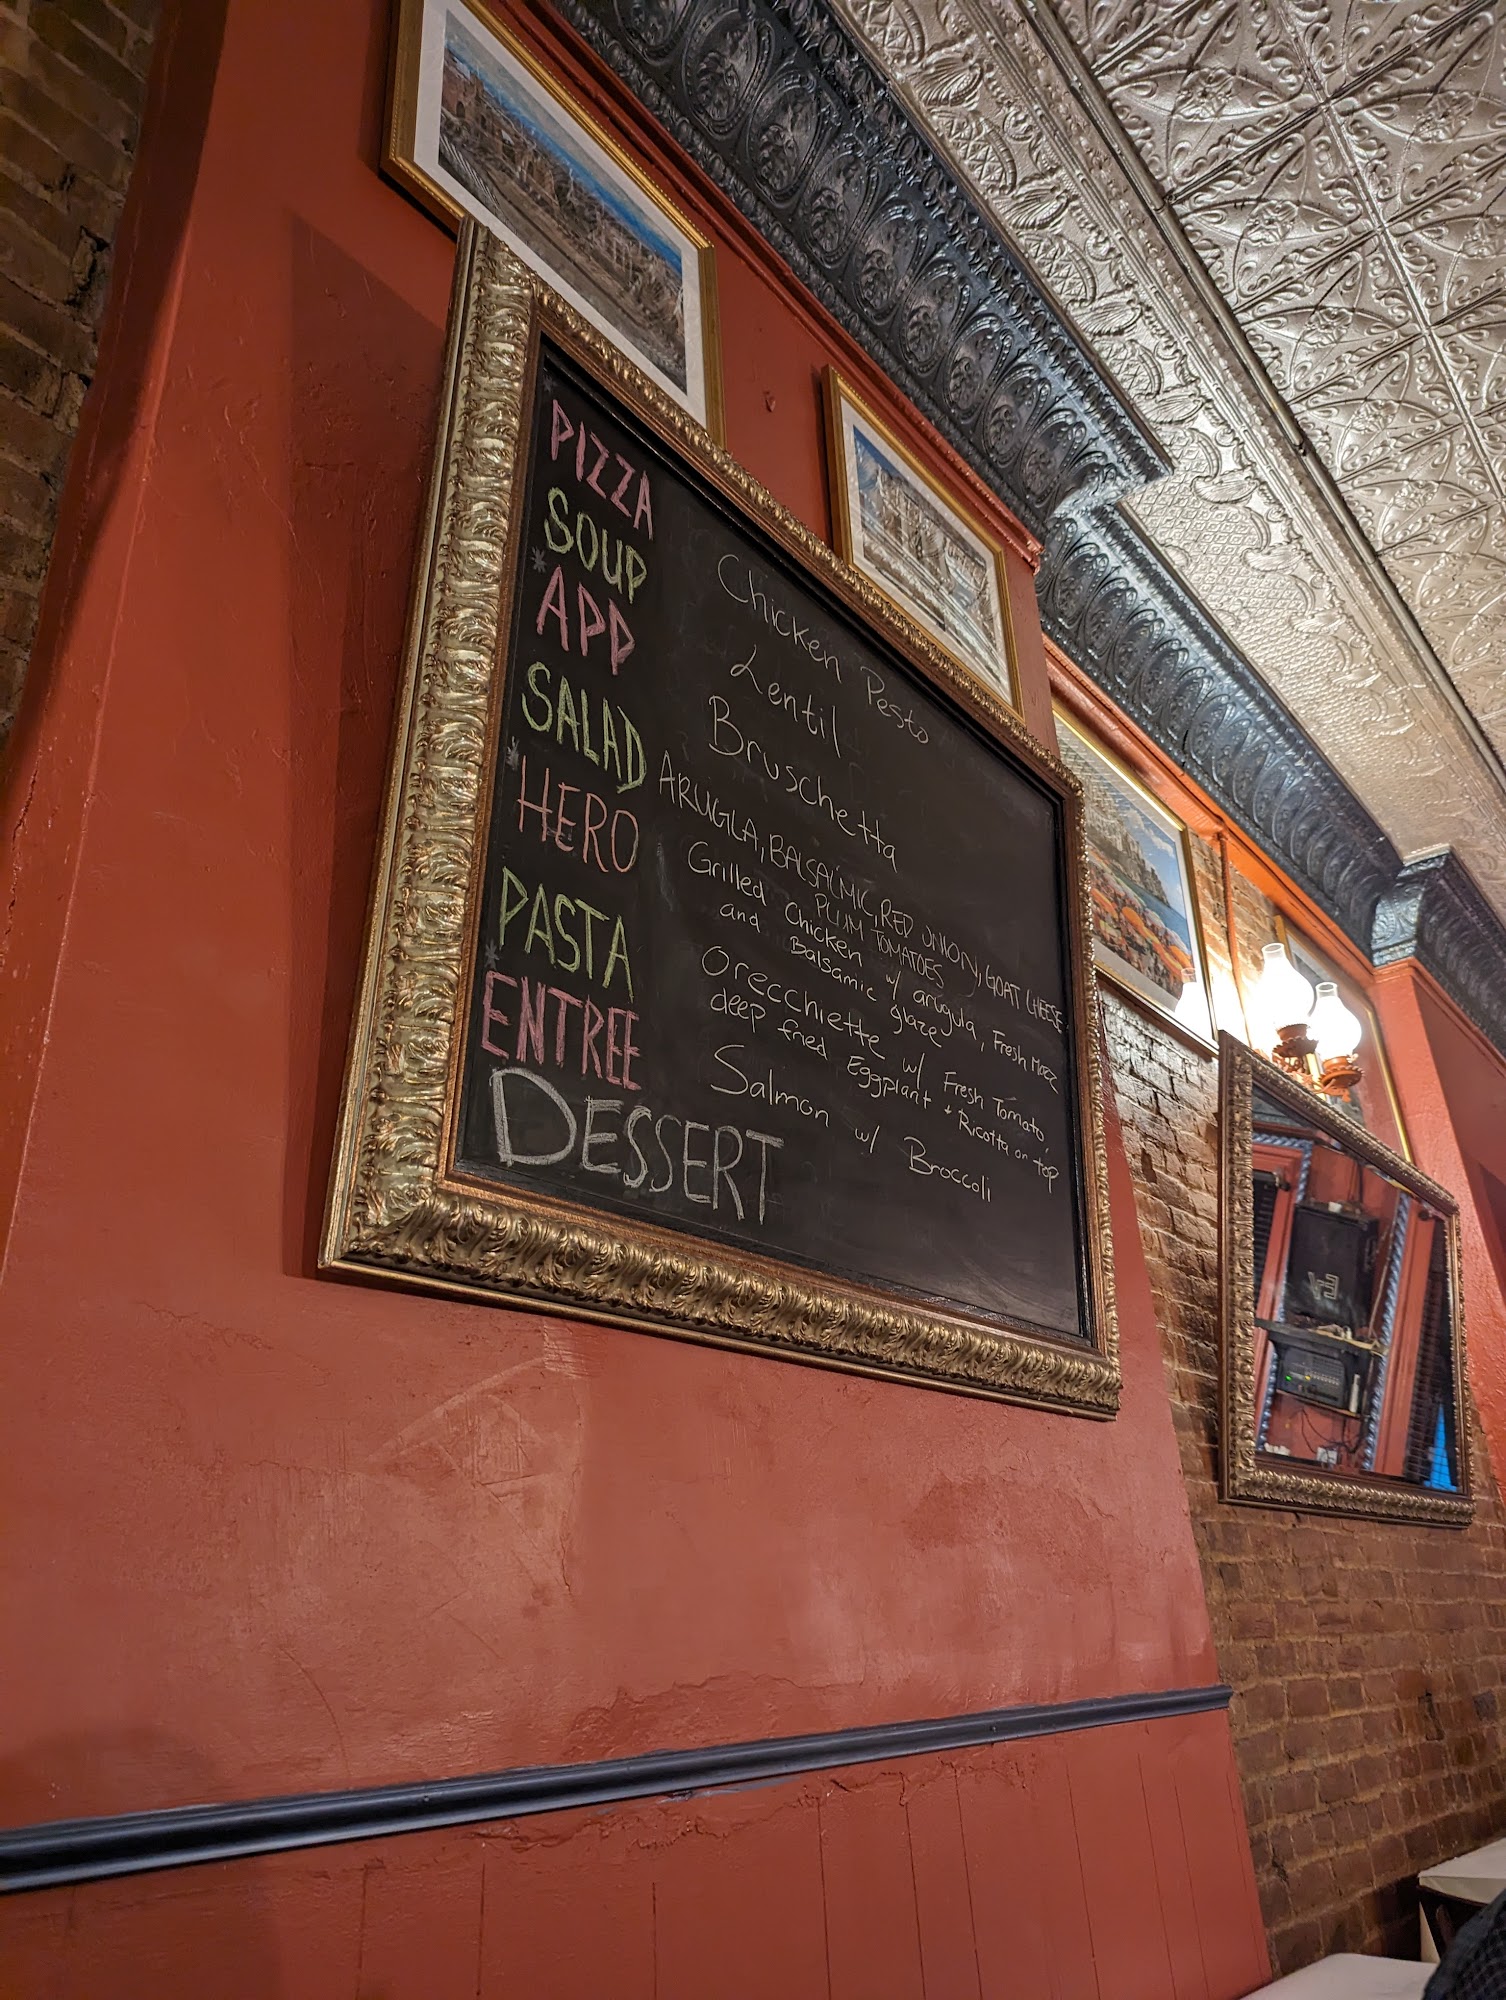 PIZZA Chicken Pesto
SOUP Lentil
APP Bruschetta
SALAD ARUGLA, BALSALMIC, RED ONION, GOAT CHEESE
PLUM TOMATOES
HERO Grilled Chicken w/ arugula, Fresh Mozz
and Balsamic glaze
PASTA Orecchiette w/ Fresh Tomato
deep fried Eggplant + Ricotta on top
ENTREE Salmon w/ Broccoli
DESSERT